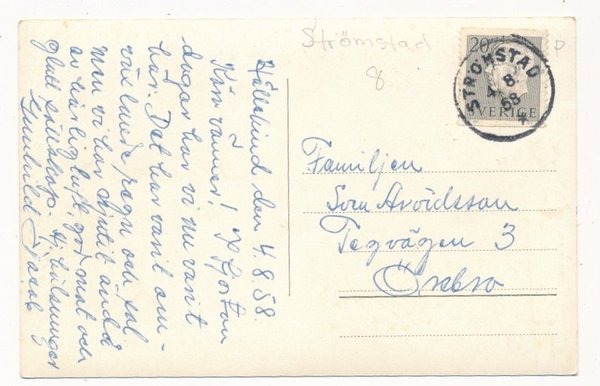 Strömstad
8
20
STRÖMSTAD
4. 8.
58
SVERIGE
Hällestrand den 4.8.58.
Kära vänner! I fjorton
dagar har vi nu varit
här. Det har varit om-
växlande regn och sol
men vi har njutit ändå
av härlig luft, god mat och
glatt sällskap. Hj. hälsningar
Gunhild Jacob
Familjen
Sven Arvidsson
Tegvägen 3
Örebro